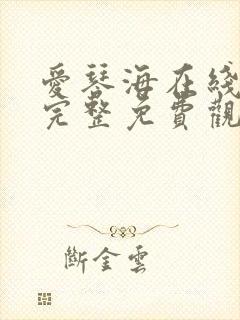 愛琴海在綫
完整免費觀
斷金雲